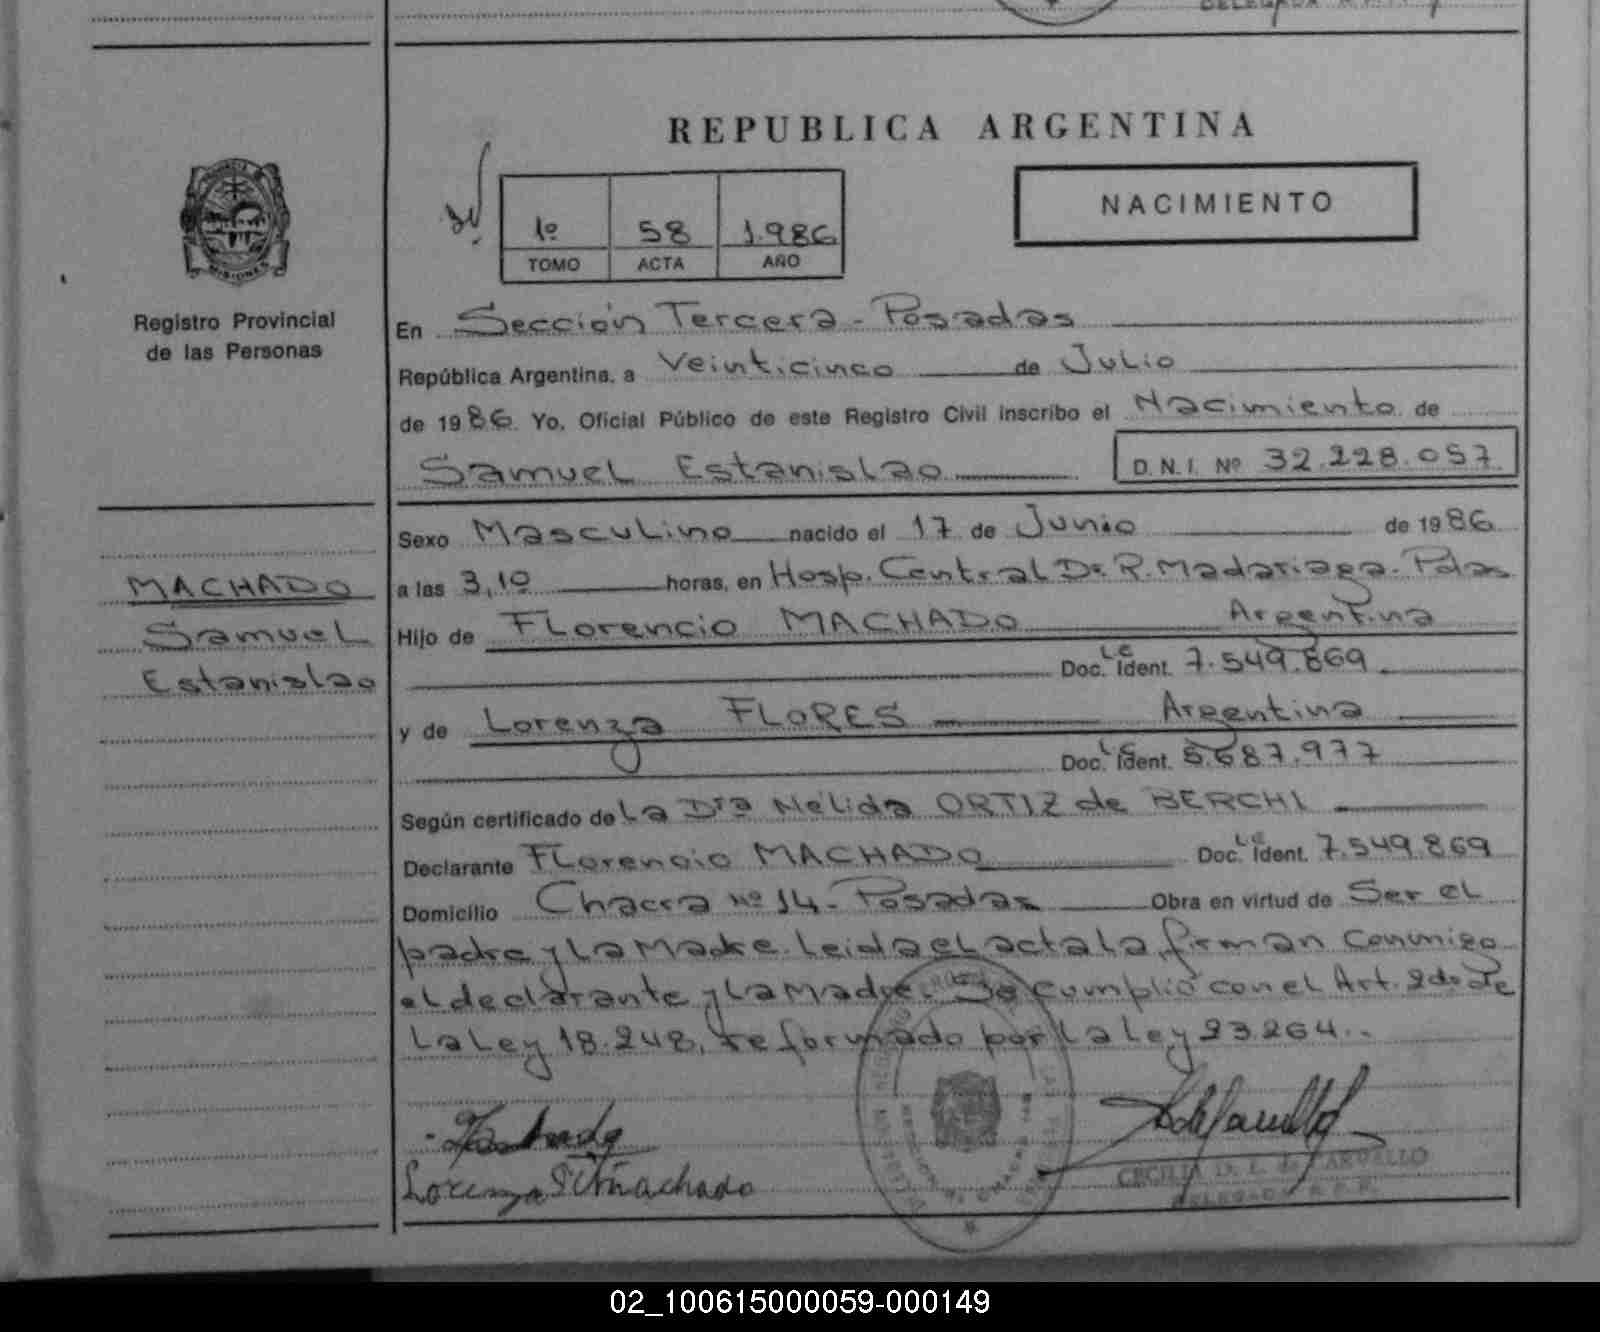 REPUBLICA ARGENTINA
NACIMIENTO
1º 58 1.986
TOMO ACTA AÑO
PROVINCIA DE
MISIONES
Registro Provincial
de las Personas
En Sección Tercera - Posadas
República Argentina, a Veinticinco de Julio
de 1986. Yo, Oficial Público de este Registro Civil inscribo el Nacimiento de
Samuel Estanislao D.N.I. Nº 32.228.057
Sexo Masculino nacido el 17 de Junio de 1986
a las 3,10 horas, en Hosp. Central Dr. R. Madariaga. Pdas
Hijo de Florencio MACHADO Argentina
Doc. Ident. L.E 7.549.869
y de Lorenza FLORES Argentina
Doc. Ident. L.C 5.687.977
Según certificado de La Dra Nélida ORTIZ de BERCHI
Declarante Florencio MACHADO Doc. Ident. L.E 7.549.869
Domicilio Chacra Nº 14 - Posadas Obra en virtud de Ser el
padre y La Madre. Leida el acta la firman conmigo
el declarante y La Madre. Se cumplió con el Art. 2do de
La Ley 18.248, reformado por la Ley 23.264..
MACHADO
Samuel
Estanislao
Machado
Lorenza F machado
CECILIA D. L. de CARVALLO
DELEGADA R.P.P.
02_100615000059-000149